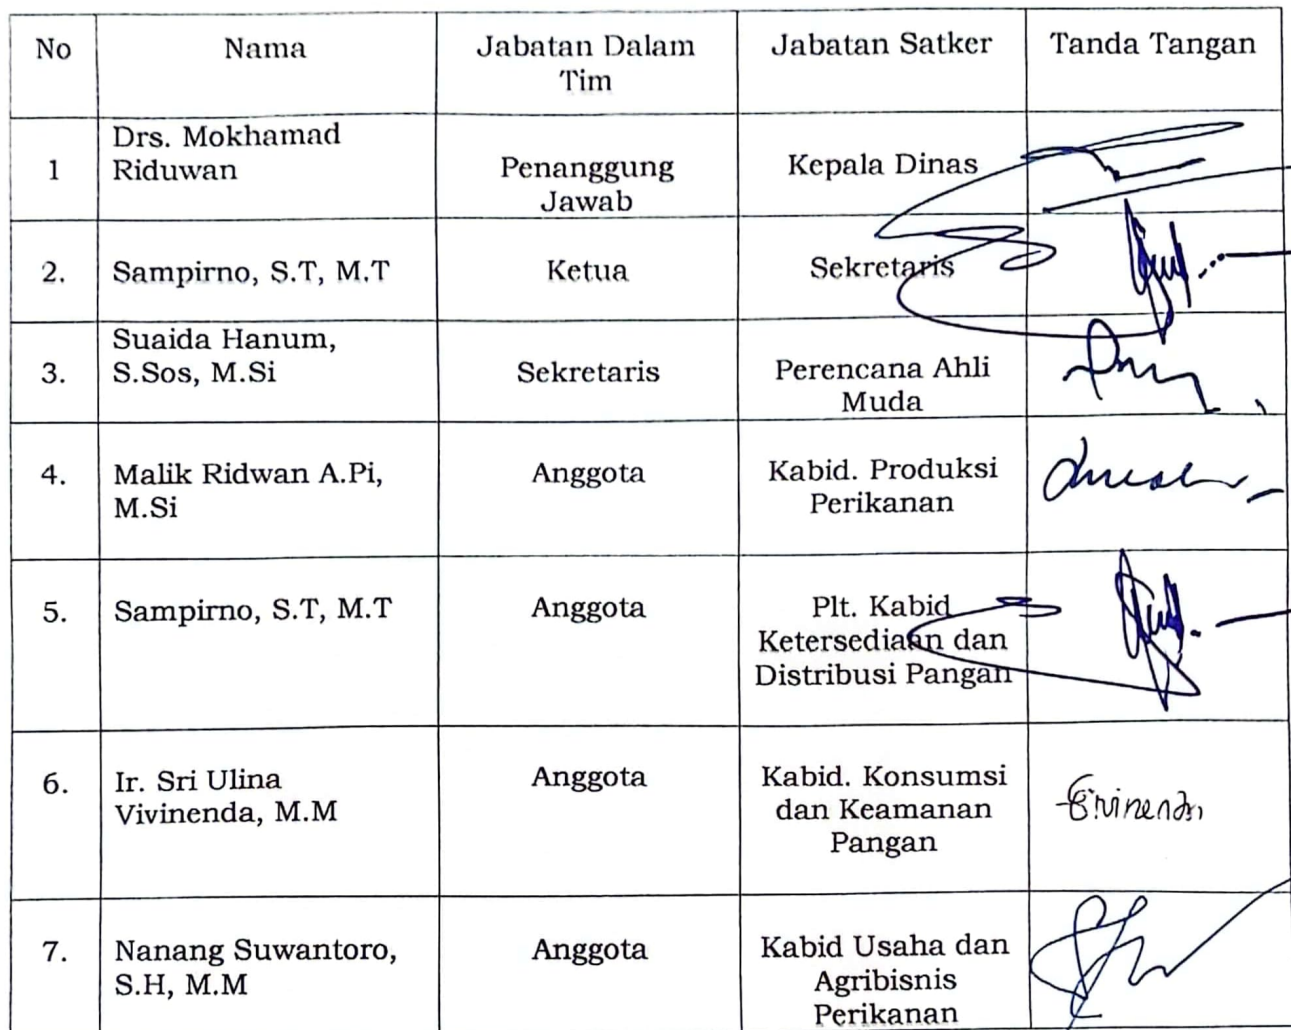 No Nama Jabatan Dalam Tim Jabatan Satker Tanda Tangan
1 Drs. Mokhamad Riduwan Penanggung Jawab Kepala Dinas
2. Sampirno, S.T, M.T Ketua Sekretaris
3. Suaida Hanum, S.Sos, M.Si Sekretaris Perencana Ahli Muda
4. Malik Ridwan A.Pi, M.Si Anggota Kabid. Produksi Perikanan
5. Sampirno, S.T, M.T Anggota Plt. Kabid Ketersediaan dan Distribusi Pangan
6. Ir. Sri Ulina Vivinenda, M.M Anggota Kabid. Konsumsi dan Keamanan Pangan
7. Nanang Suwantoro, S.H, M.M Anggota Kabid Usaha dan Agribisnis Perikanan